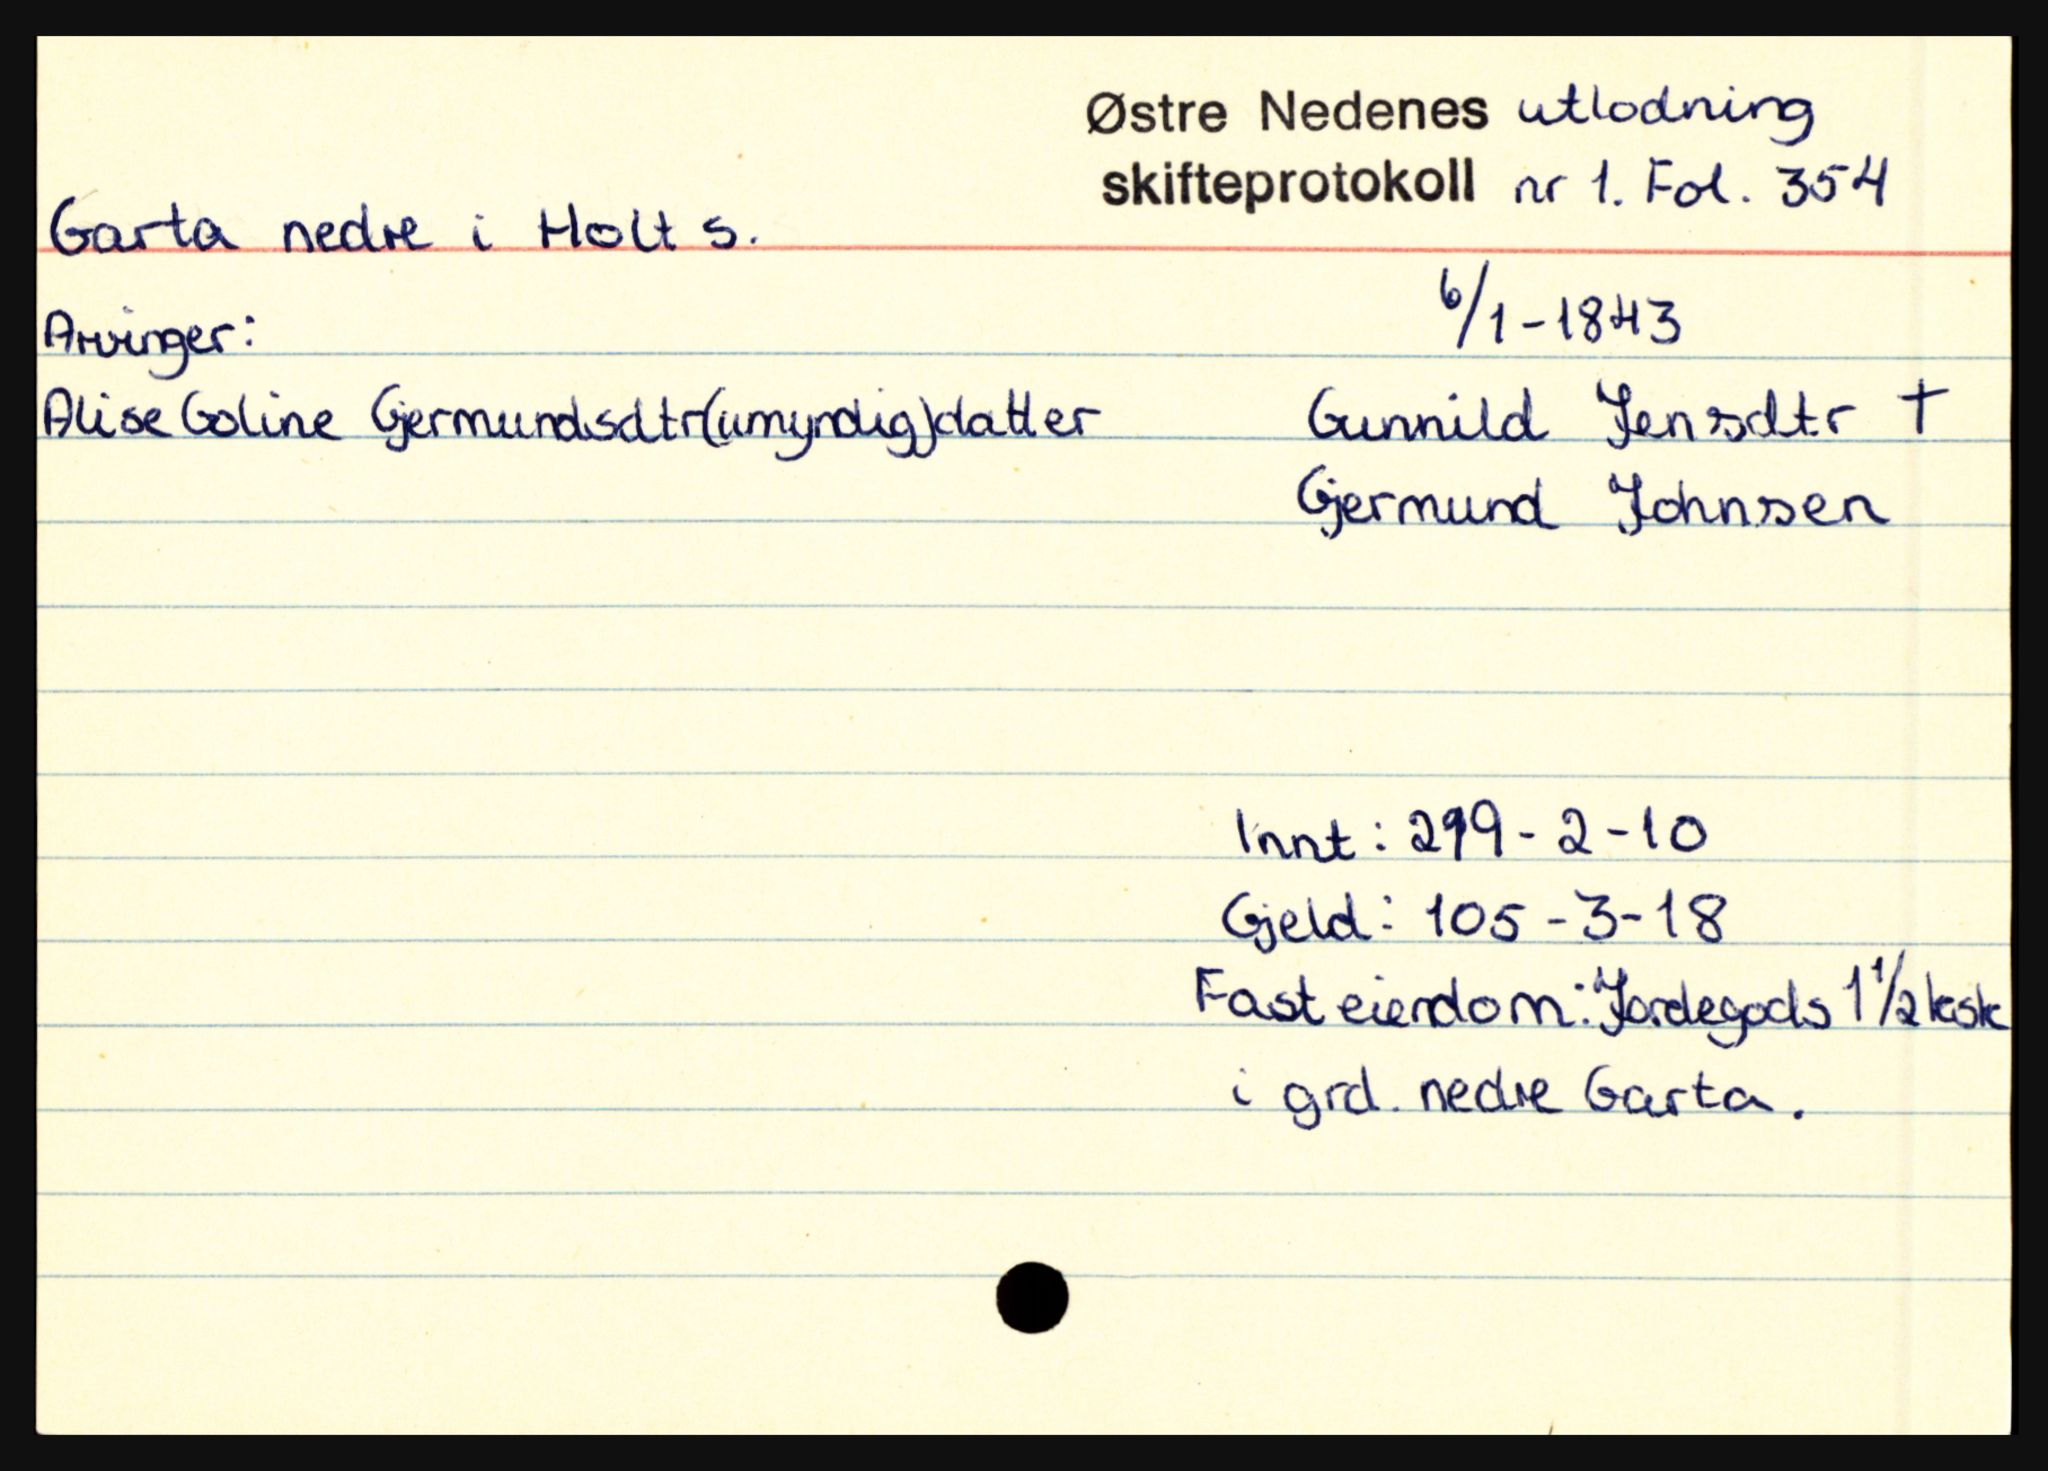 Østre Nedenes utlodning
skifteprotokoll nr 1. Fol. 354
Garta nedre i Holt s.
6/1-1843
Arvinger:
Alise Goline Gjermundsdtr(umyndig)datter Gunnild Jensdtr †
Gjermund Johnsen
Innt: 299-2-10
Gjeld: 105-3-18
Fast eiendom: Jordegods 1 1/2 ksk
i grd. nedre Garta.